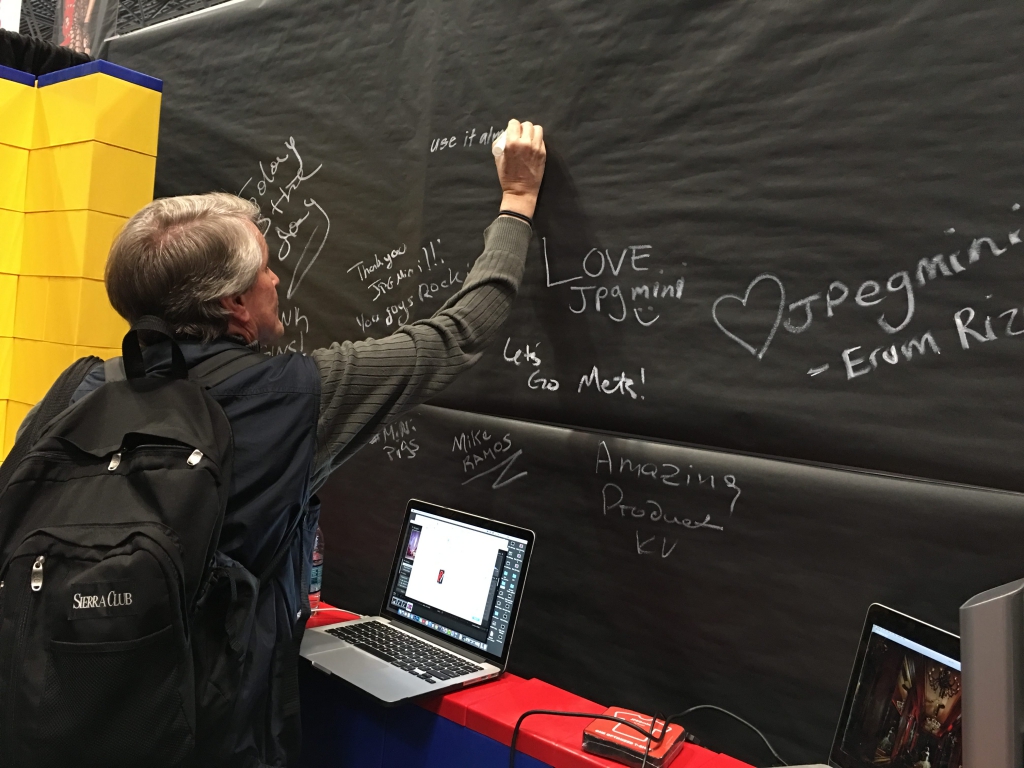 use it alm
Thank you
JPGmini!!!
You guys Rock!
LOVE
JPgmini
JPegmini
- Erum Riz
Let's
Go Mets!
Mike
RAMOS
Amazing
Product
KV
SIERRA CLUB